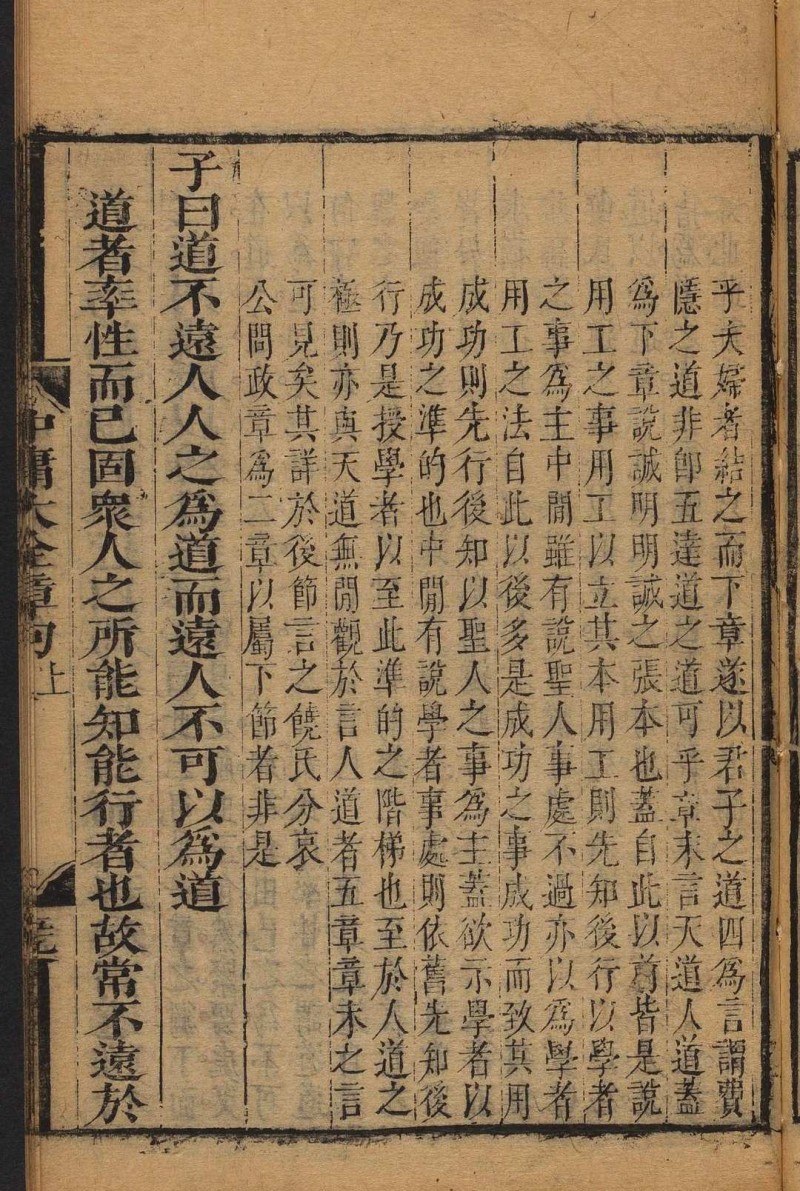 乎夫婦者結之而下章遂以君子之道四爲言謂費
隱之道非卽五達道之道可乎章末言天道人道蓋
爲下章說誠明明誠之張本也蓋自此以前皆是說
用工之事用工以立其本用工則先知後行以學者
之事爲主中間雖有說聖人事處不過亦以爲學者
用工之法自此以後多是成功之事成功而致其用
成功則先行後知以聖人之事爲主蓋欲示學者以
成功之準的也中間有說學者事處則依舊先知後
行乃是授學者以至此準的之階梯也至於人道之
極則亦與天道無間觀於言人道者五章章末之言
可見矣其詳於後節言之饒氏分哀
公問政章爲二章以屬下節者非是
子曰道不遠人人之爲道而遠人不可以爲道
道者率性而已固衆人之所能知能行者也故常不遠於
中庸大全章句上